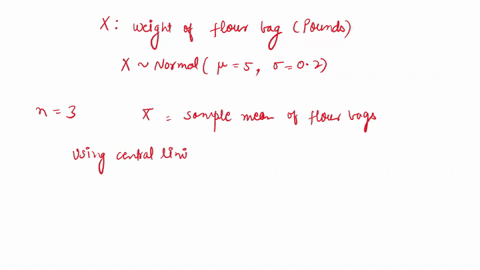 X: weight of flour bag (Pounds)
X ~ Normal ( μ = 5, σ = 0.2)
n = 3 X̄ = sample mean of flour bags
Using central limi